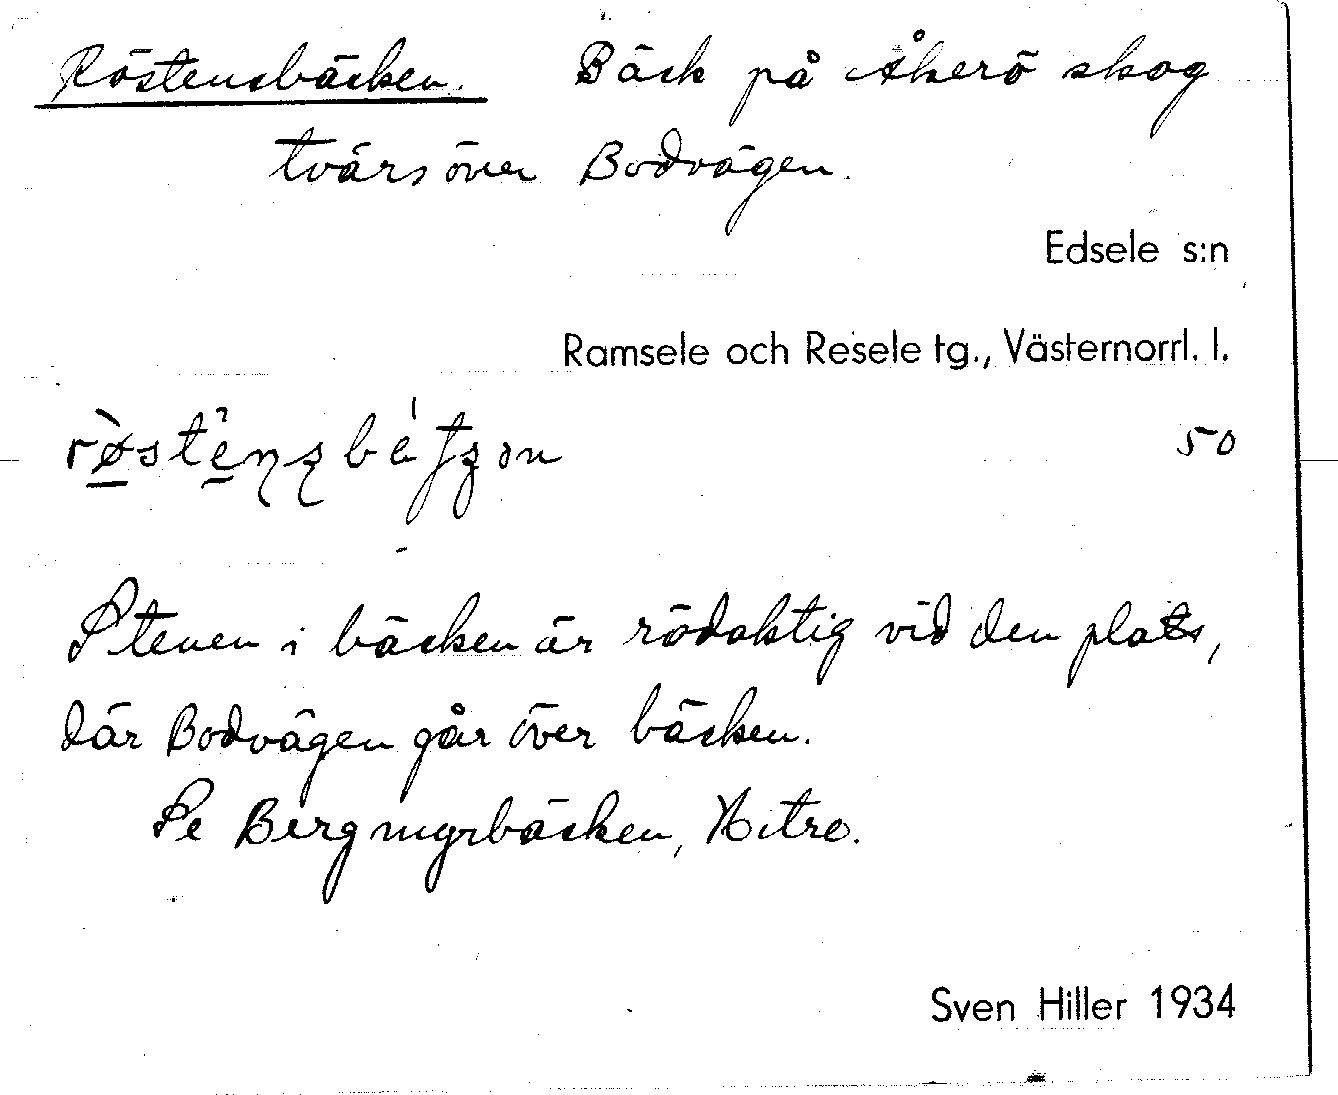 Röstensbäcken. Bäck på Åkerö skog
tvärs över Bodvägen.
Edsele s:n
Ramsele och Resele tg., Västernorrl. l.
50
Stenen i bäcken är rödaktig vid den plats,
där Bodvägen går över bäcken.
Se Bergmyrbäcken, Xitre.
Sven Hiller 1934